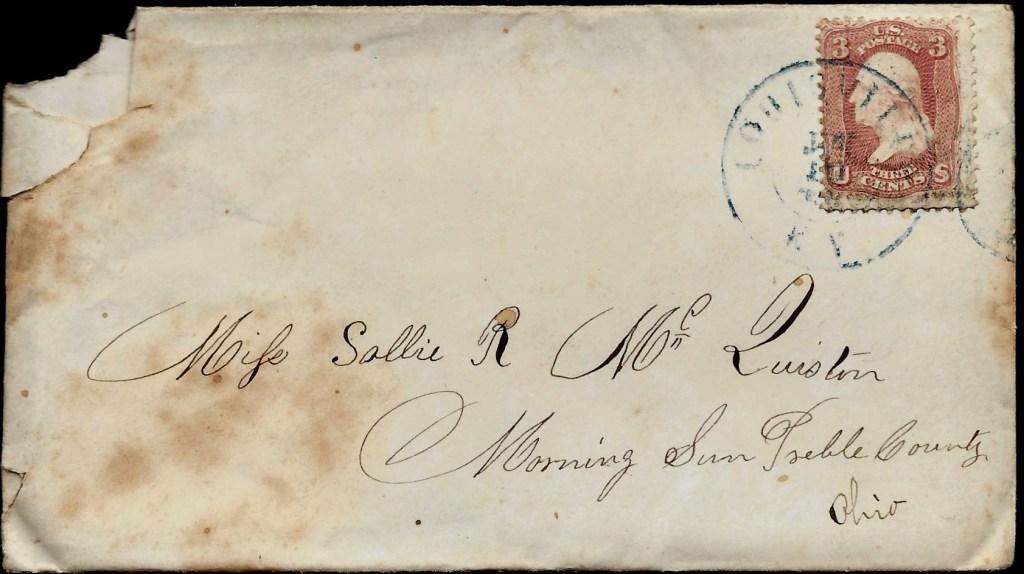 3 U.S. 3
POSTAGE
THREE
CENTS
LOUISVILLE
KY.
Miss Sallie R Mc Quiston
Morning Sun Preble County
Ohio